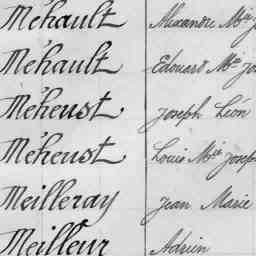 Méhault Alexandre Mie J
Méhault Edouard Mie Jo
Méheust Joseph Léon
Méheust Louis Mie Joseph
Meilleray Jean Marie
Meilleur Adrien